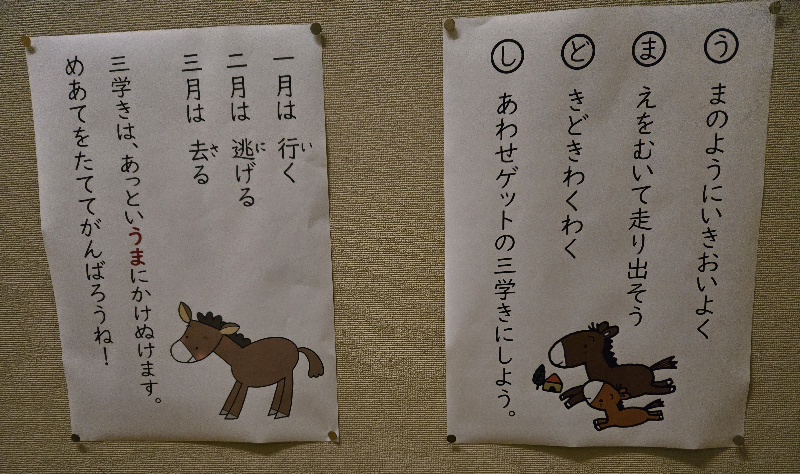 う まのようにいきおいよく
ま えをむいて走り出そう
ど きどきわくわく
し あわせゲットの三学きにしよう。
一月は 行く
い
二月は 逃げる
に
三月は 去る
さ
三学きは、あっといううまにかけぬけます。
めあてをたててがんばろうね!